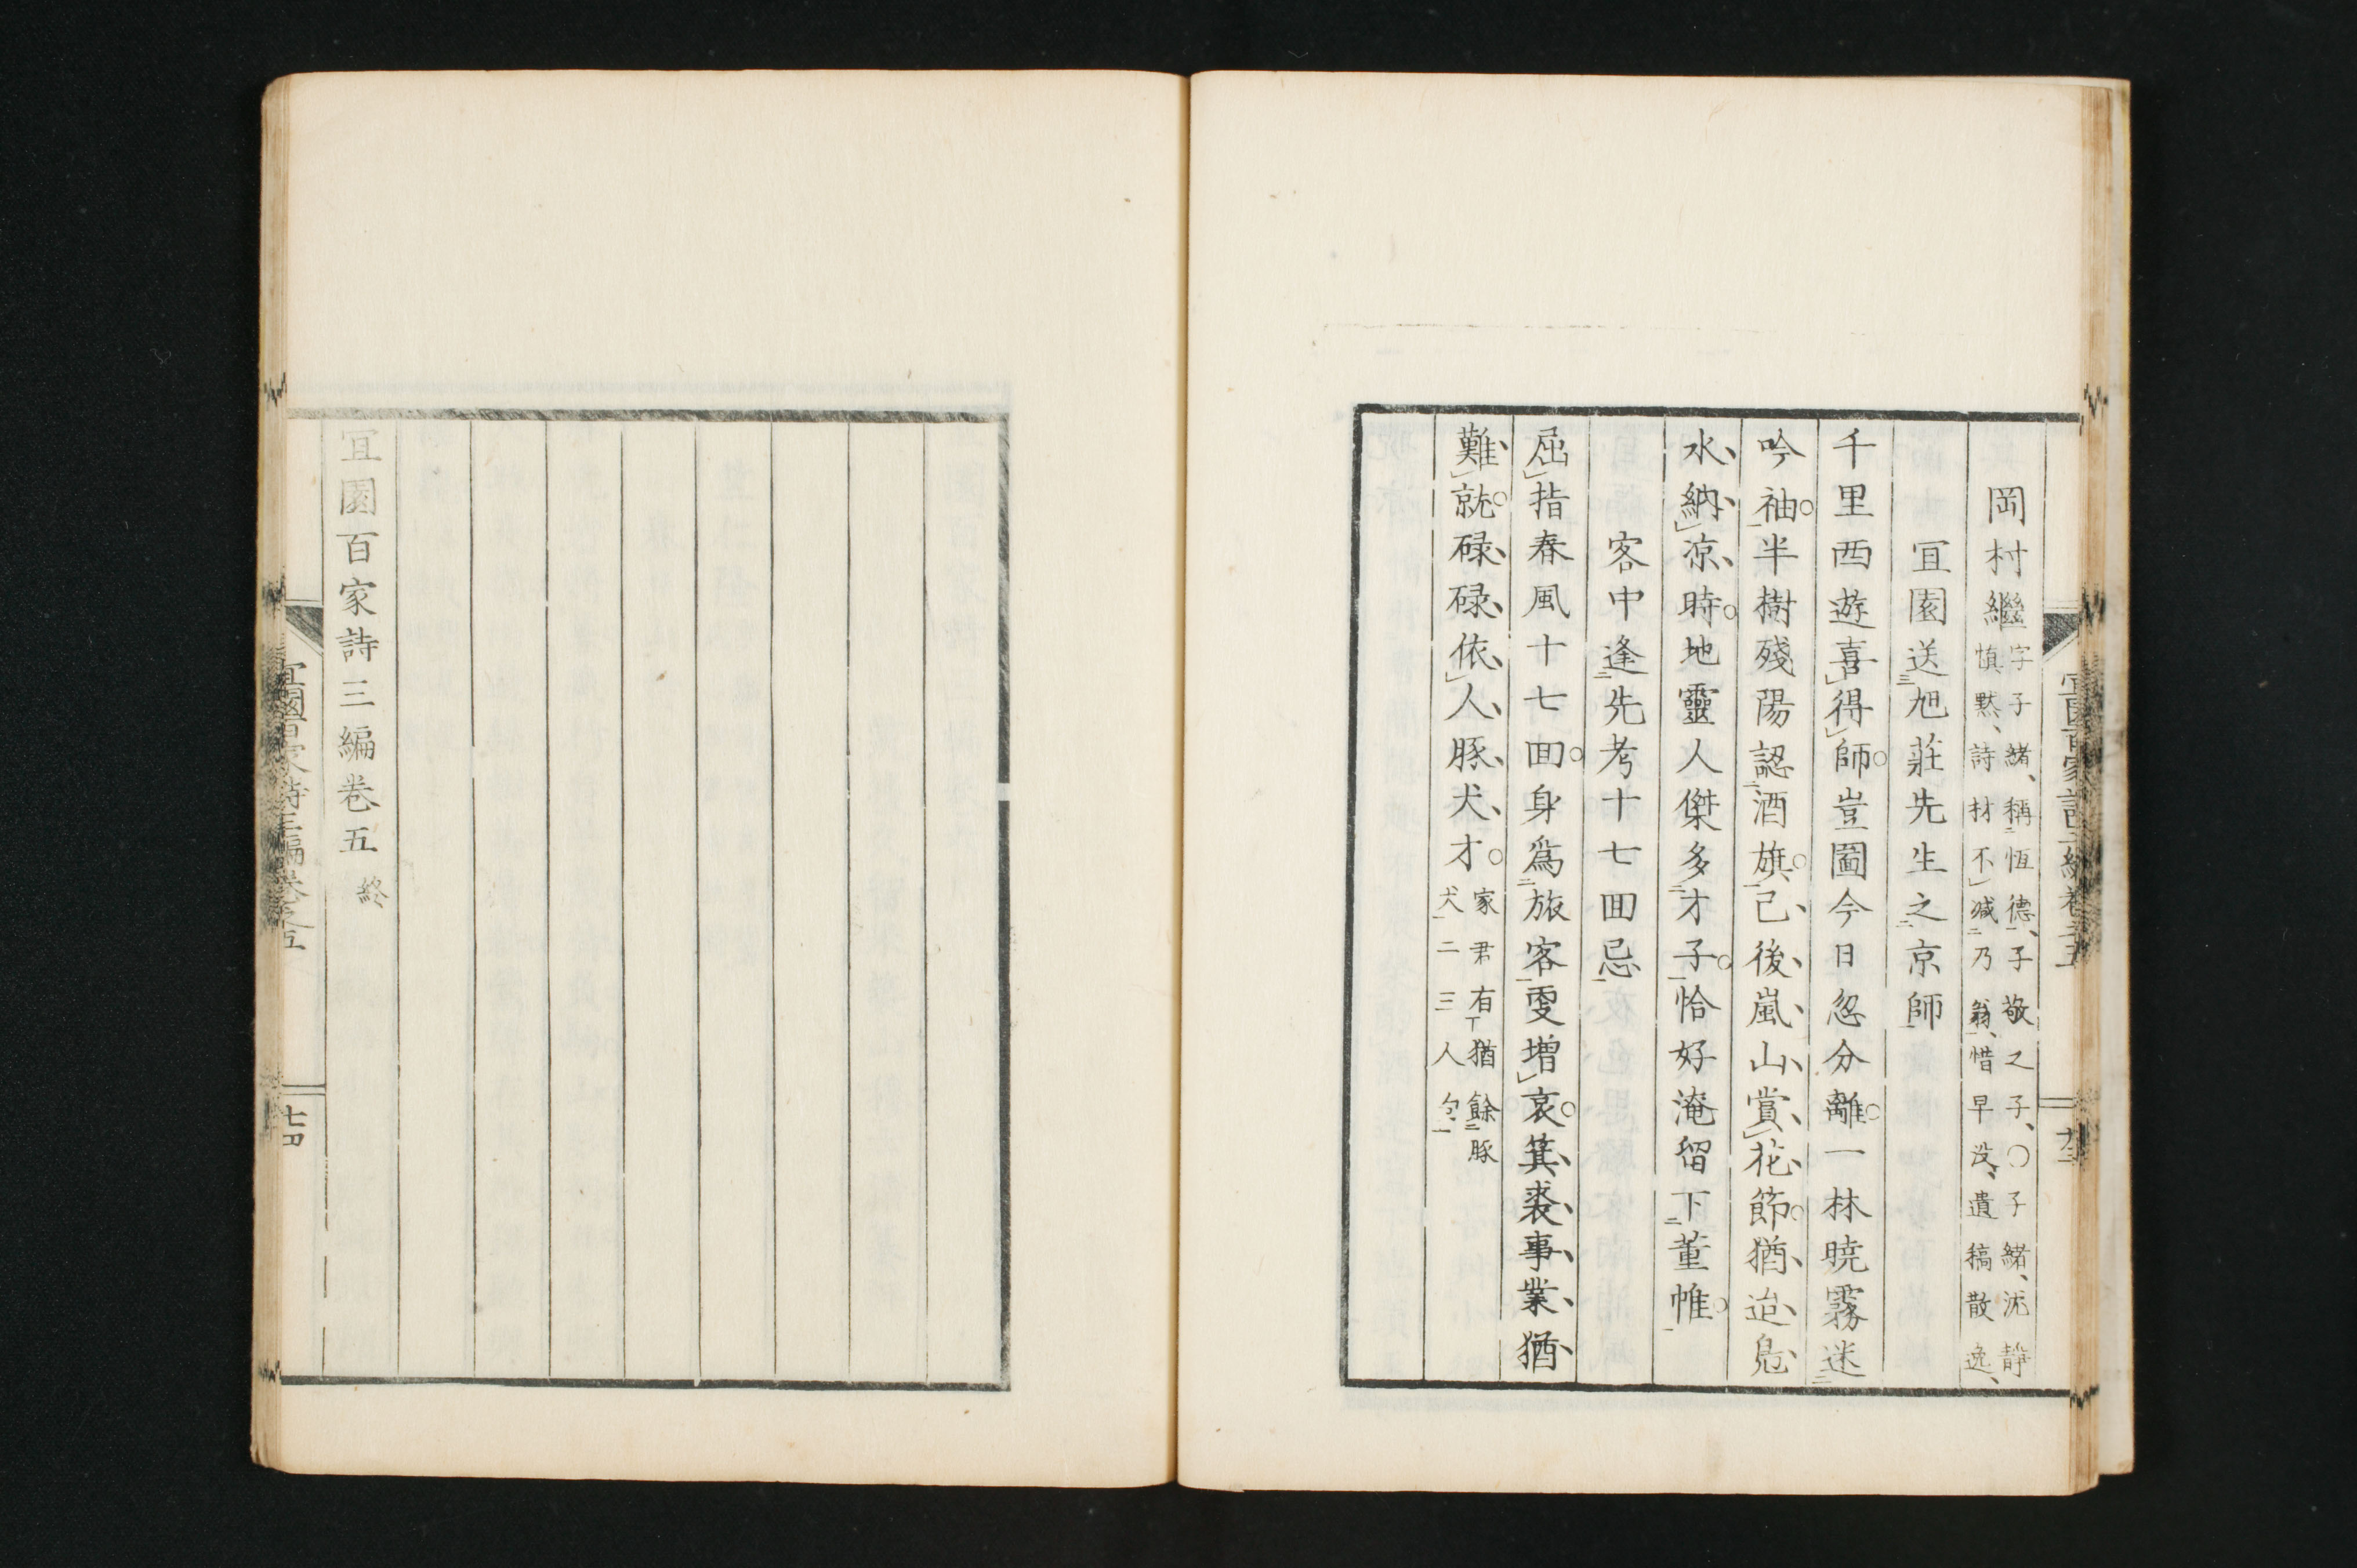 岡村繼
字子緒、稱恆德、子敬之子、〇子緒、沈静
慎黙、詩材不減乃翁、惜早没、遺稿散逸、
宜園送旭莊先生之京師
千里西遊喜得師豈圖今日忽分離一林曉霧迷
吟袖半樹殘陽認酒旗已後嵐山賞花節猶迨鳧
水納凉時地靈人傑多才子恰好淹留下董帷
客中逢先考十七回忌
屈指春風十七回身爲旅客更增哀箕裘事業猶
難就碌碌依人豚犬才
家君有猶餘豚
犬二三人句
宜園百家詩三編卷五終
宜園百家詩三編卷之五
七四